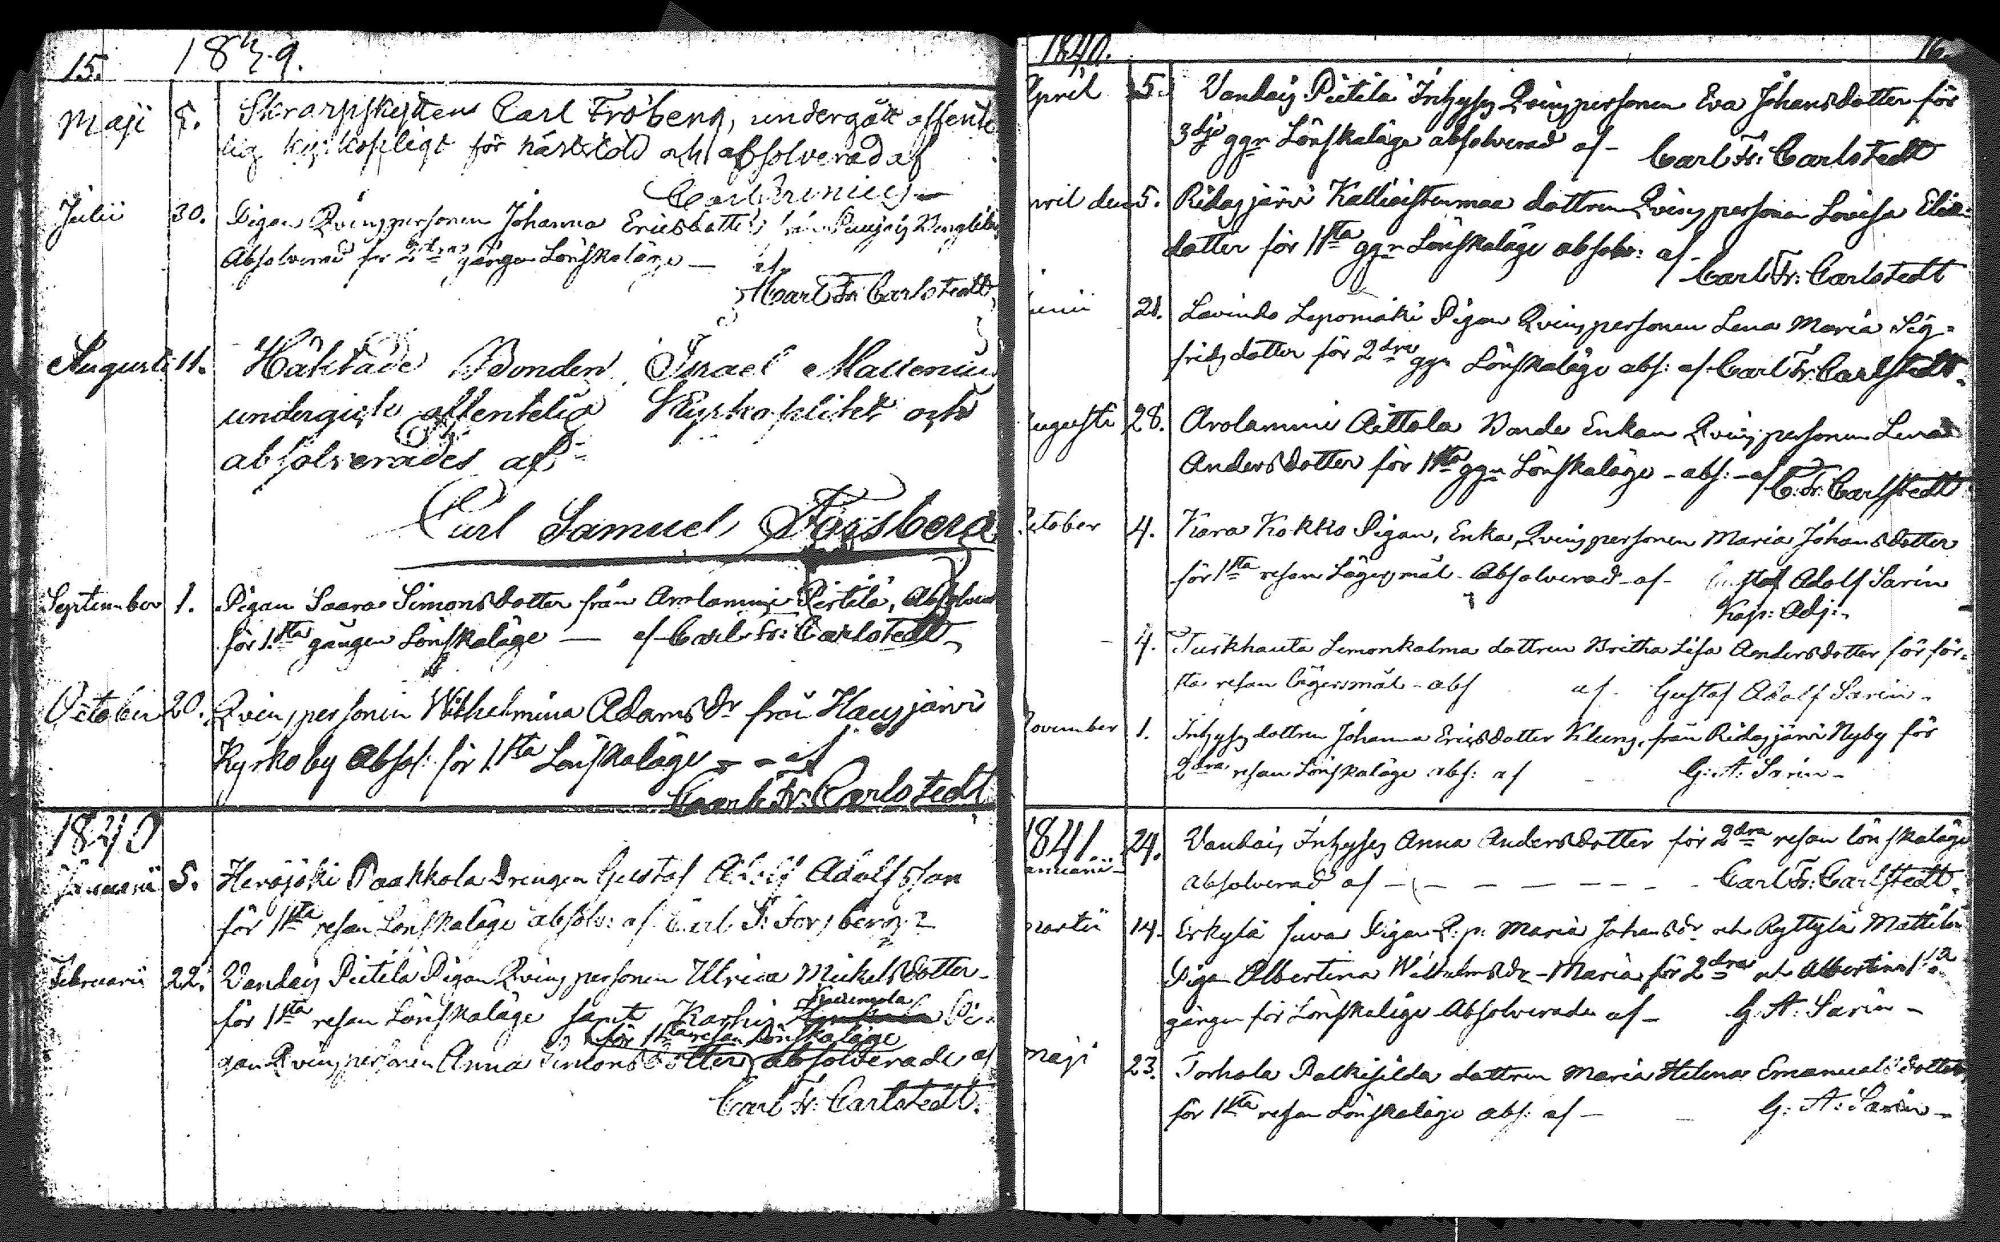 15. 1839.
Maji 5. Skrarpskytten Carl Fröberg, undergått offent
lig kyrkopligt för och absolverad af
Carl
Julii 30. Pigan Qvinspersonen Johanna Ericsdotter från
Absolverad för 2dra gången Lönskaläge — af
Carl Fr: Carlstedt
Augusti 11. Häktade Bonden Israel
undergick offentelig Kyrkoplikt och
absolverades af
Carl Samuel Forssberg
September 1. Pigan Saara Simonsdotter från Arolammi Pietilä, Absolverad
för 1sta gången Lönskaläge — af Carl Fr: Carlstedt
October 20. Qvinspersonen Wilhelmina Adamsdr från Hausjärvi
Kyrkoby Absol: för 1sta Lönskaläge — af
Carl Fr: Carlstedt
1840
Januarii 5. Herajoki Paakkola Drengen Gustaf Adolf Adolfsson
för 1sta resan Lönskaläge absolv: af Carl S: Forsberg
Februarii 22. Vandais Pietilä Pigan Qvinspersonen Ulrica Mickelsdotter
för 1sta resan Lönskaläge samt Karhis Pi-
för 1sta resan Lönskaläge
gan Qvinspersonen Anna Simonsdotter absolverade af
Carl Fr: Carlstedt.
1840. 16.
April 5. Vandais Pietilä Inhyses Qvinspersonen Eva Johansdotter för
3dje ggn Lönskaläge absolverad af — Carl Fr: Carlstedt
April den 5. Ridasjärvi Kallioistenmaa dottren Qvinspersonen Lovisa Elias-
dotter för 1sta ggn Lönskaläge absolv: af
Carl Fr: Carlstedt
Junii 21. Lavinto Leponiäki Pigan Qvinspersonen Lena Maria Sig-
fridsdotter för 2dra ggn Lönskaläge abs: af Carl Fr: Carlstedt
Augusti 28. Arolammi Aittola Bonde Enkan Qvinspersonen Lena
Andersdotter för 1sta ggn Lönskaläge — abs: — af C: Fr: Carlstedt
October 4. Kara Kokko Pigan, Enka, Qvinspersonen Maria Johansdotter
för 1sta resan Lägersmål — Absolverad — af — Gustaf Adolf Sarin
Kap: Adj:
4. Turkhauta Simonkalma dottren Britha Lisa Andersdotter för för-
sta resan lägersmål — abs af — Gustaf Adolf Sarin —
November 1. Inhyses dottren Johanna Ericsdotter Klung, från Ridasjärvi Nyby för
2dra resan Lönskaläge abs: af — G: A: Sarin —
1841
Januarii 24. Vandais Inhyses Anna Andersdotter för 2dra resan lönskaläge
absolverad af — — — — — — Carl Fr: Carlstedt.
Martii 14. Erkylä Juva Pigan Q: p: Maria Johansdr och Ryttylä Mattila
Pigan Albertina Wilhelmsdr — Maria för 2dra och Albertina 1sta
gången för Lönskaläge Absolverade af — G: A: Sarin —
Maji 23. Torhola Palkisilda dottren Maria Helena Emanuelsdotter
för 1sta resan Lönskaläge abs: af — G: A: Sarin —